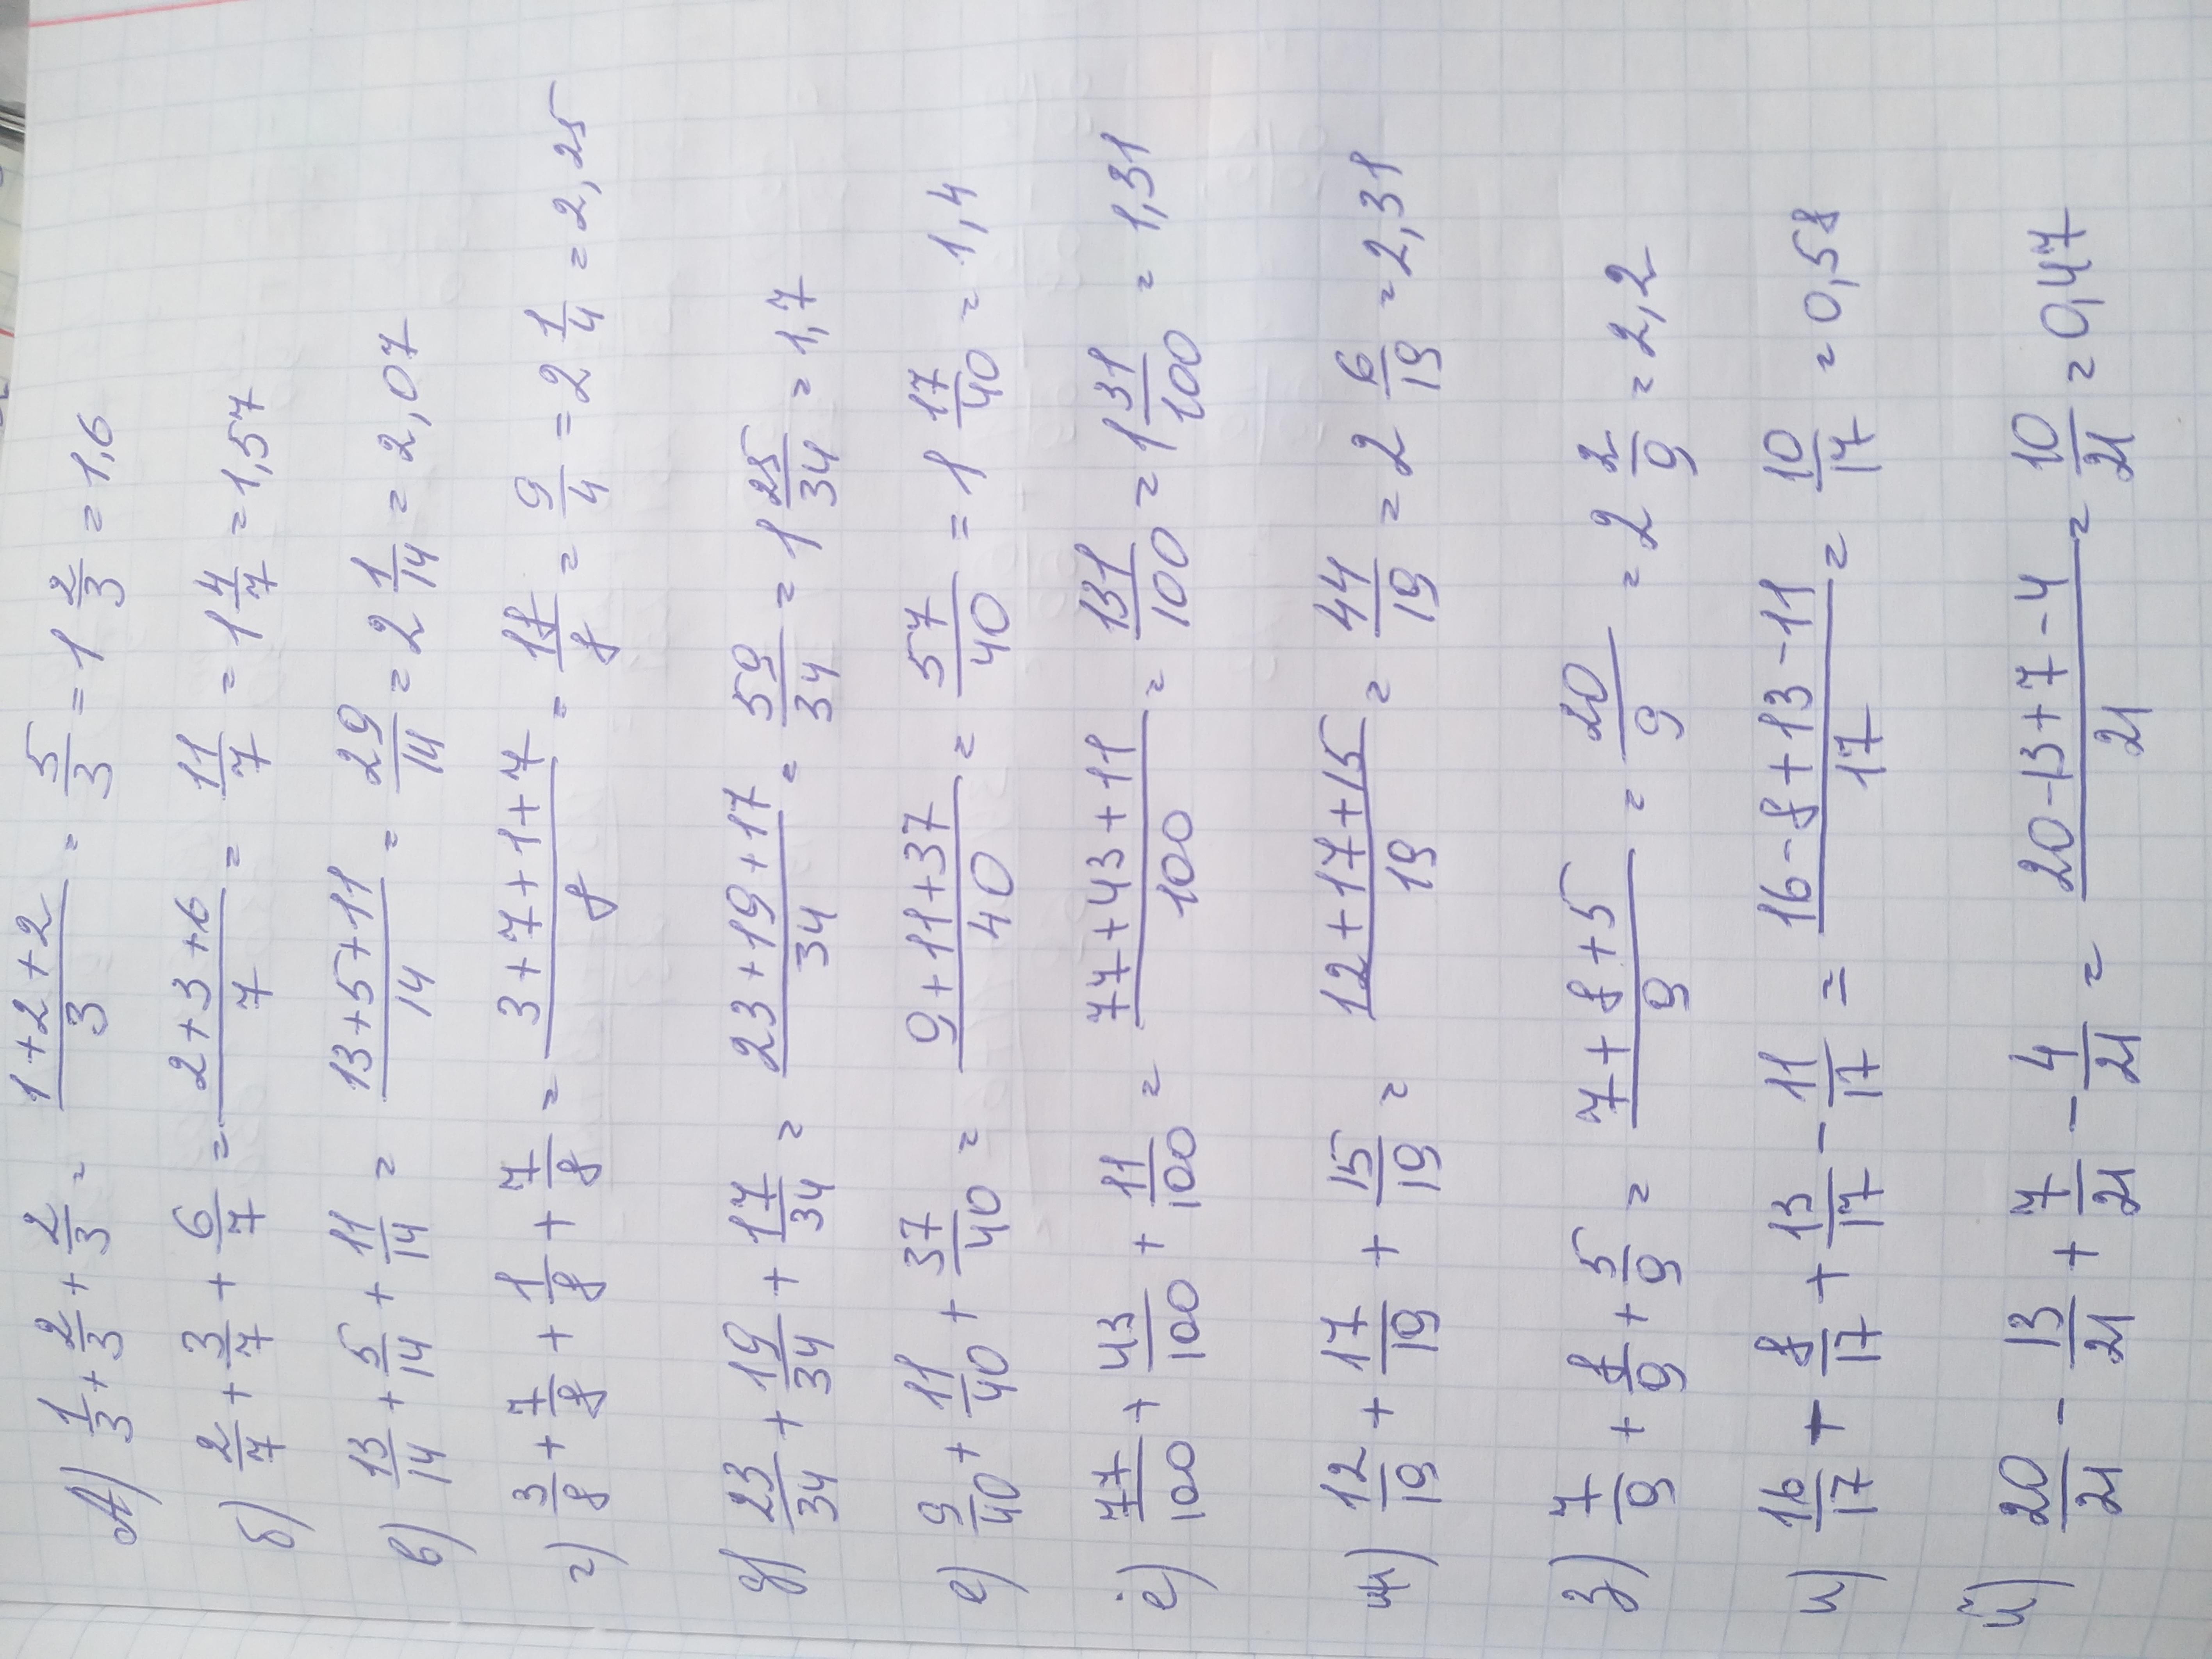 А) 1/3 + 2/3 + 2/3 = (1+2+2)/3 = 5/3 = 1 2/3 = 1,6
б) 2/7 + 3/7 + 6/7 = (2+3+6)/7 = 11/7 = 1 4/7 = 1,57
в) 13/14 + 5/14 + 11/14 = (13+5+11)/14 = 29/14 = 2 1/14 = 2,07
г) 3/8 + 7/8 + 1/8 + 7/8 = (3+7+1+7)/8 = 18/8 = 9/4 = 2 1/4 = 2,25
д) 23/34 + 19/34 + 17/34 = (23+19+17)/34 = 59/34 = 1 25/34 = 1,7
е) 9/40 + 11/40 + 37/40 = (9+11+37)/40 = 57/40 = 1 17/40 = 1,4
ё) 77/100 + 43/100 + 11/100 = (77+43+11)/100 = 131/100 = 1 31/100 = 1,31
ж) 12/19 + 17/19 + 15/19 = (12+17+15)/19 = 44/19 = 2 6/19 = 2,31
з) 7/9 + 8/9 + 5/9 = (7+8+5)/9 = 20/9 = 2 2/9 = 2,2
и) 16/17 + 8/17 + 13/17 - 11/17 = (16-8+13-11)/17 = 10/17 = 0,58
й) 20/21 - 13/21 + 7/21 - 4/21 = (20-13+7-4)/21 = 10/21 = 0,47